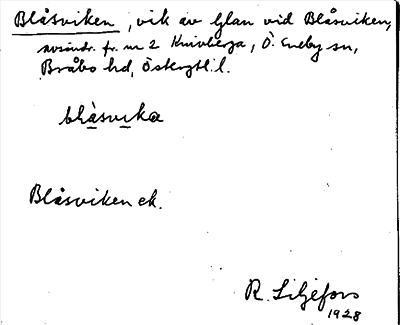 Blåsviken, vik av Glan vid Blåsviken,
avsöndr. fr. nr 2 Knivberga, Ö. Eneby sn,
Bråbo hd, Östergötl. l.
blåsvika
Blåsviken ek.
R. Liljefors
1928